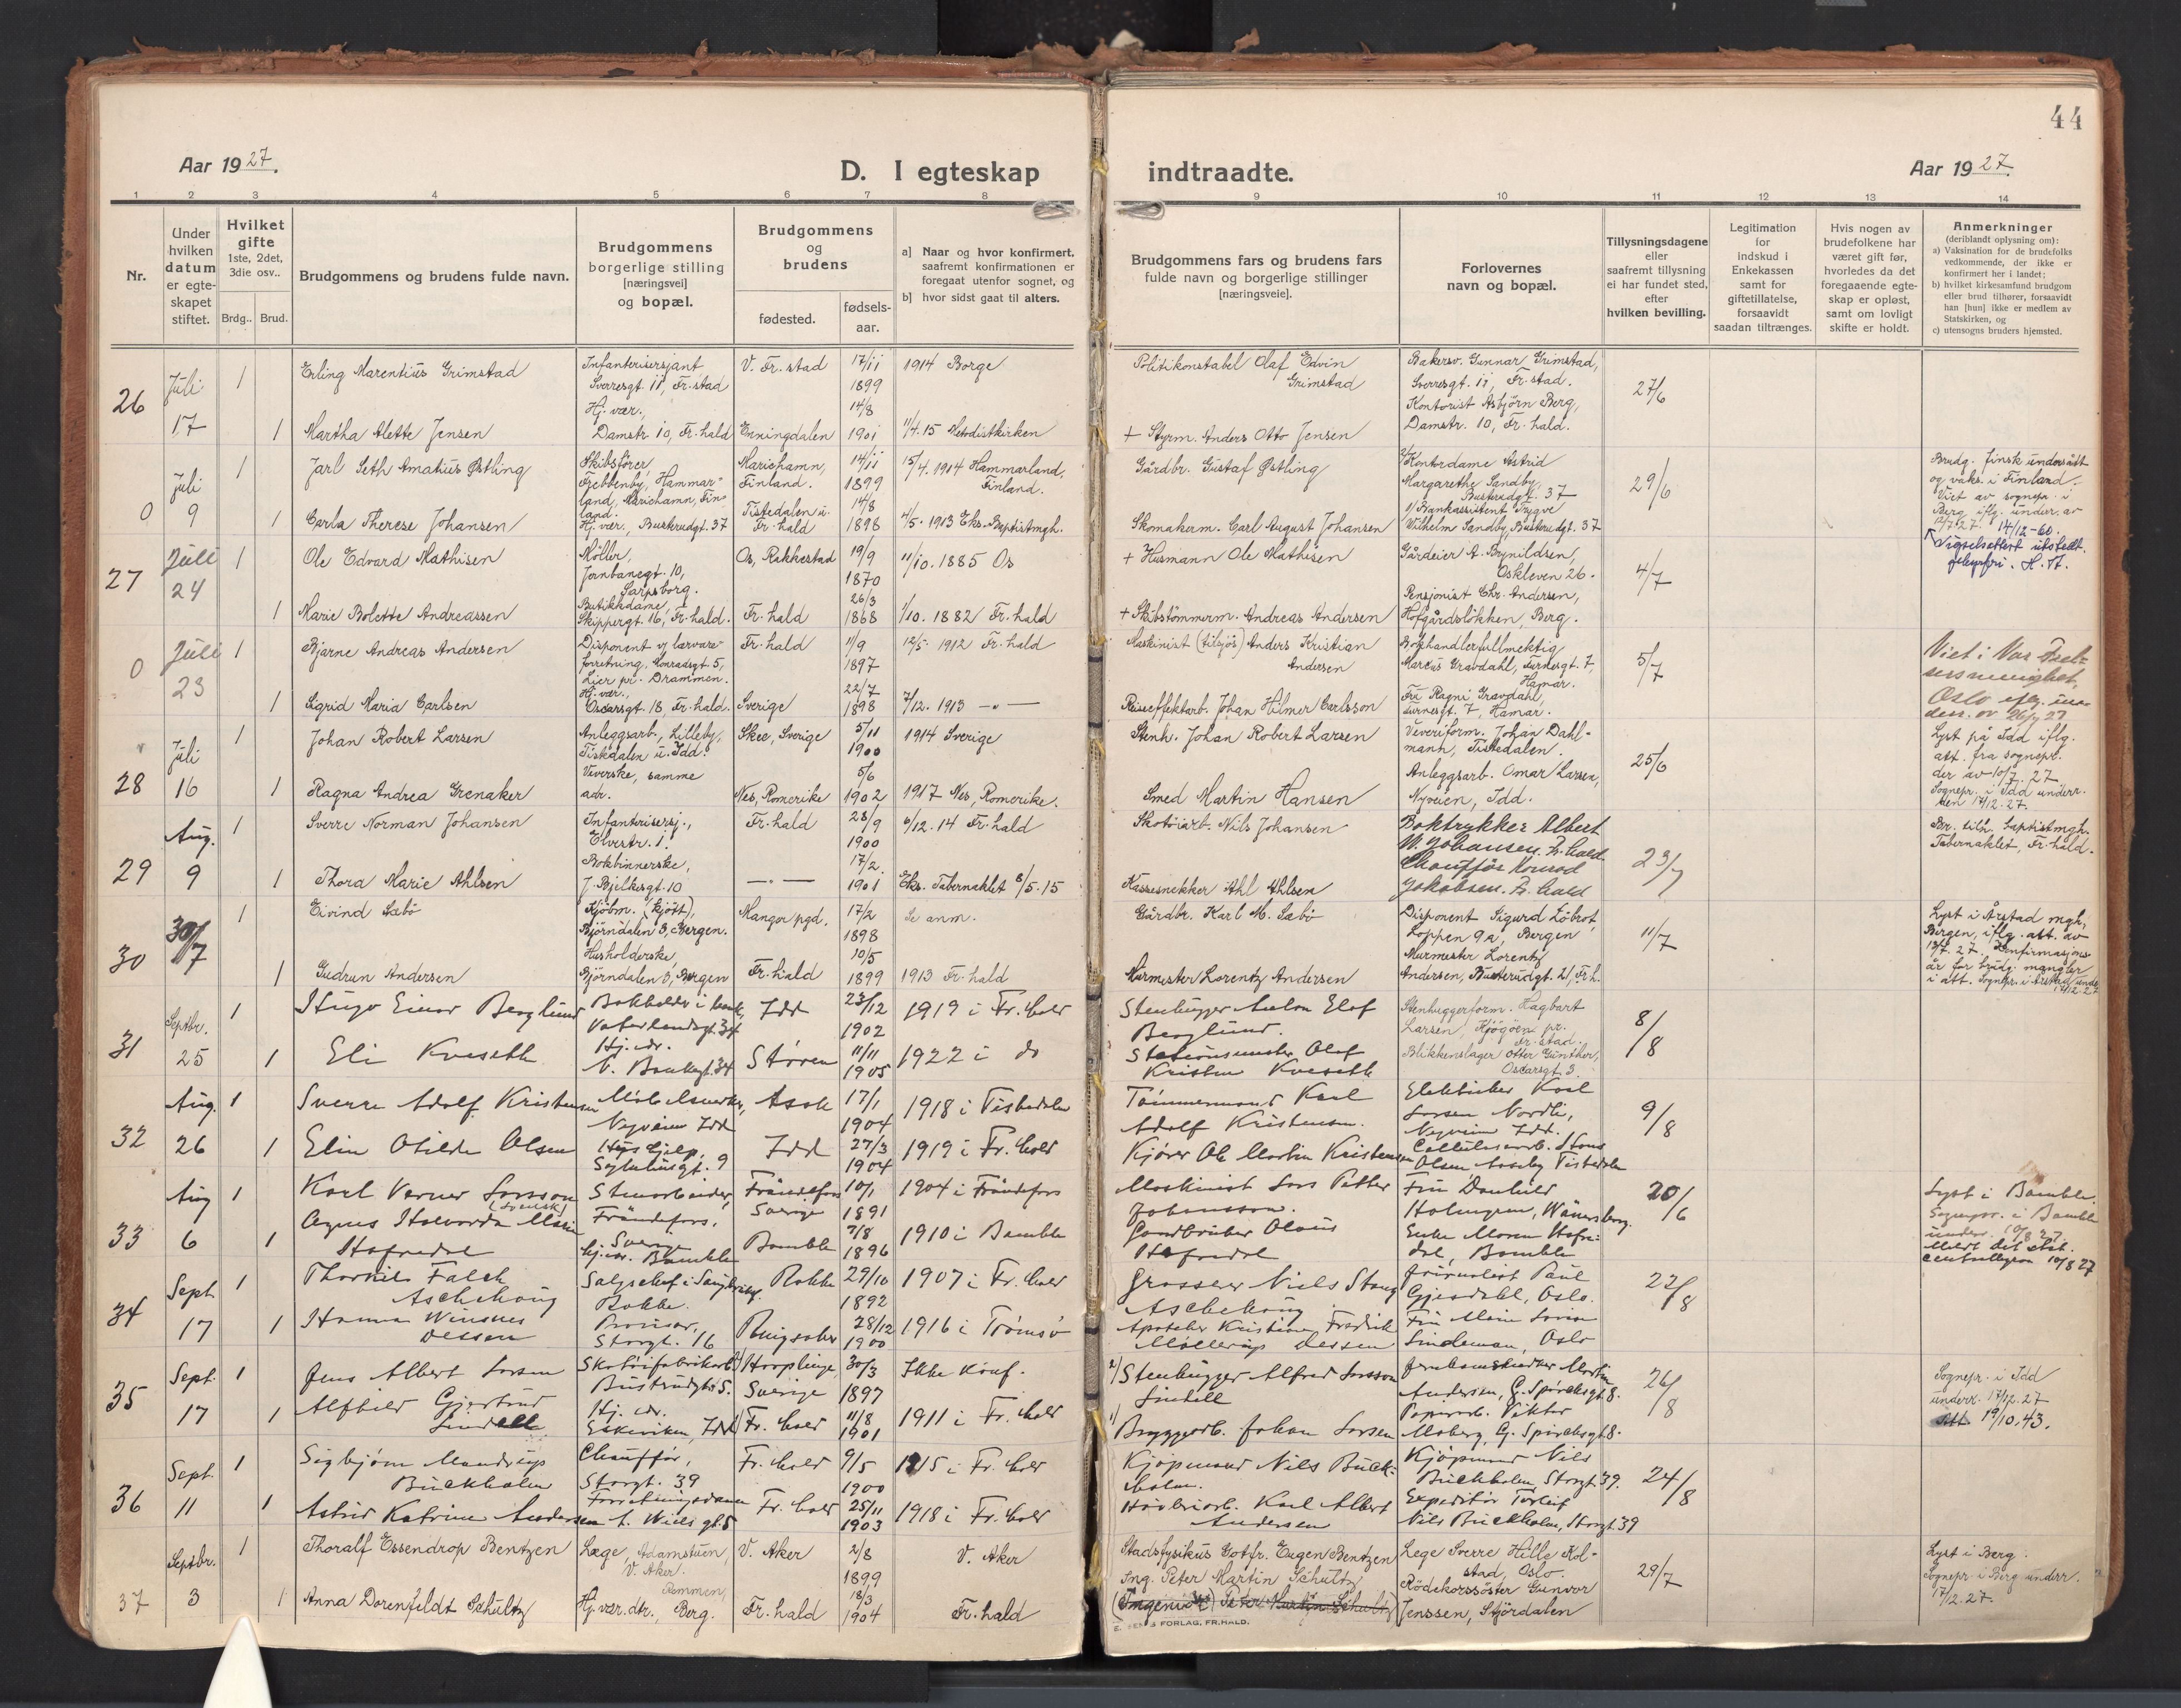 44
Aar 1927.
D. I egteskap indtraadte.
Aar 1927
1 2 3 4 5 6 7 8 9 10 11 12 13 14
Nr.
Under hvilken datum er egte-skapet stiftet.
Hvilket gifte 1ste, 2det, 3die osv..
Brdg.. Brud.
Brudgommens og brudens fulde navn.
Brudgommens borgerlige stilling [næringsvei] og bopæl.
Brudgommens og brudens
fødested.
fødsels-aar.
a] Naar og hvor konfirmert, saafremt konfirmationen er foregaat utenfor sognet, og
b] hvor sidst gaat til alters.
Brudgommens fars og brudens fars fulde navn og borgerlige stillinger [næringsveie].
Forlovernes navn og bopæl.
Tillysningsdagene eller saafremt tillysning ei har fundet sted, efter hvilken bevilling.
Legitimation for indskud i Enkekassen samt for giftetillatelse, forsaavidt saadan tiltrænges.
Hvis nogen av brudefolkene har været gift før, hvorledes da det foregaaende egte-skap er opløst, samt om lovligt skifte er holdt.
Anmerkninger
(deriblandt oplysning om):
a) Vaksination for de brudefolks vedkommende, der ikke er konfirmert her i landet;
b) hvilket kirkesamfund brudgom eller brud tilhører, forsaavidt han [hun] ikke er medlem av Statskirken, og
c) utensogns bruders hjemsted.
26 Juli 17
1 Erling Marentius Grimstad
Infanterisersjant Sverresgt. 11, Fr.stad
V. Fr.stad 17/11 1899 1914 Borge
Politikonstabel Olaf Edvin Grimstad
Bakersv. Gunnar Grimstad, Sverresgt. 11, Fr.stad.
27/6
1 Martha Alette Jensen
Hj. vær., Damstr. 10, Fr.hald
Enningdalen 14/8 1901 11/4.15 Metodistkirken
+ Styrm. Anders Otto Jensen
Kontorist Asbjörn Berg, Damstr. 10, Fr.hald.
0 Juli 9
1 Jarl Seth Amatius Østling
Skibsförer, Frebbenby, Hammarland, Mariehamn, Finland.
Mariehamn, Finland. 14/11 1899 15/4.1914 Hammarland, Finland.
Gårdbr. Gustaf Østling
2/ Kontordame Astrid Margarethe Sandby, Busterudgt. 37
29/6
Brudg. finsk undersått og vaks. i Finland.
Viet av sognepr. i Berg iflg. underr. av 12/7.27. 14/12-60.
Vigselsattest utstedt.
1 Carla Therese Johansen
Hj. vær., Busterudgt. 37
Tistedalen u. Fr.hald 14/8 1898 4/5.1913 Eks. Baptistmgh.
Skomakerm. Carl August Johansen
1/ Bankassistent Trygve Vilhelm Sandby, Busterudgt. 37
27 Juli 24
1 Ole Edvard Mathisen
Møller, Jernbanegt. 10, Sarpsborg.
Os, Rakkestad 19/9 1870 11/10.1885 Os
+ Husmann Ole Mathisen
Gårdeier A. Brynildsen, Oskleven 26.
4/7
1 Marie Bolette Andreassen
Butikkdame, Skippergt. 16, Fr.hald.
Fr.hald 26/3 1868 1/10.1882 Fr.hald
+ Skibstömmerm. Andreas Andersen
Pensjonist Chr. Andersen, Hofgårdslökken, Berg.
0 Juli 23
1 Bjarne Andreas Andersen
Disponent forretning, Konradsgt. 5, Lier pr. Drammen.
Fr.hald 11/9 1897 12/5.1912 Fr.hald
Maskinist (tilsjös) Anders Kristian Andersen
Bokhandlerfullmektig Marcus Gravdahl, Turnergt. 7, Hamar.
5/7
Viet i Vor Frelsers menighet, Oslo
1 Sigrid Maria Carlsen
Hj. vær., Oscarsgt. 18, Fr.hald.
Sverige 22/7 1898 7/12.1913 —"—
Johan Hilmer Carlsson
Fru Ragni Gravdahl, Turnergt. 7, Hamar.
28 Juli 16
1 Johan Robert Larsen
Anleggsarb., Lilleby, Tistedalen u. Idd.
Skee, Sverige 5/11 1900 1914 Sverige
Stenh. Johan Robert Larsen
Veveriform. Johan Dahlmann, Tistedalen.
25/6
Lyst på Idd iflg. att. fra sognepr. der av 10/7.27
Sognepr. i Idd underr. den 17/12.27.
1 Ragna Andrea Grenaker
Veverske, samme adr.
Nes, Romerike 5/6 1902 1917 Nes, Romerike.
Smed Martin Hansen
Anleggsarb. Omar Larsen, Nyveien, Idd.
29 Aug. 9
1 Sverre Norman Johansen
Infanterisersj., Elvestr. 1.
Fr.hald 28/9 1900 6/12.14 Fr.hald
Skotöiarb. Nils Johansen
Boktrykker Albert Johansen, Fr.hald.
23/7
Br. tilh. baptistmgh. Tabernaklet, Fr.hald.
1 Thora Marie Ahlsen
Bokbinnerske, J. Bjelkesgt. 10
—"— 17/2 1901 Eks. Tabernaklet 8/5.15
Kassesnekker Ahl Ahlsen
Chauffør Konrad Jakobsen, Fr.hald
30 30/7
1 Eivind Sæbö
Kjöbm. (kjött), Björndalen 3, Bergen.
Manger pgd. 17/2 1898 Se anm.
Gårdbr. Karl M. Sæbö
Disponent Sigurd Löbrot, Loppen 9a, Bergen
11/7
Lyst i Årstad mgh., Bergen, iflg. att. av 13/7.27. Konfirmasjonsår for brudg. mangler i att.
1 Gudrun Andersen
Husholderske, Björndalen 3, Bergen
Fr.hald 10/5 1899 1913 Fr.hald
Murmester Lorentz Andersen
Murmester Lorentz Andersen, Busterudgt. 21, Fr.h.
31 Septbr. 25
1 Hugo Einar Berglund
Bokholder i bank, Vaterlandsgt. 34
Idd 23/12 1902 1919 i Fr.hald
Stenhugger Anton Elof Berglund.
Stenhuggerform. Hagbart Larsen, Kjøgöen pr. Fr.stad.
8/8
1 Eli Kveseth
Hj. vær. V. Bankegt. 34
Støren 11/11 1905 1922 i do
Stationsmester Olof Kristen Kveseth
Blikkenslager Otter Günther, Oscarsgt. 3.
32 Aug. 26
1 Sverre Adolf Kristensen
Nyveien Idd
Asak 17/1 1904 1918 i Tistedalen
Tømmermand Karl Adolf Kristensen.
Elektriker Karl Larsen Nordli, Nyveien Idd.
9/8
1 Elin Otilde Olsen
Hushjelp,
Idd 27/3 1904 1919 i Fr.hald
Kjører Ole Martin Kristensen
Cellulosearb. Hans Olsen Aaseby Tistedalen
33 Aug 6
1 Karl Verner Larsson (svensk)
Stenarbeider, Frändefors, Sverige
Frändefors Sverige 10/1 1891 1904 i Frändefors
Maskinist Lars Petter Johansson.
Holmgren, Wänersborg.
20/6
Lyst i Bamble.
Sognepr. i Bamble underr. 10/8 27.
Meldt det stat. centralbyraa 10/8 27
1 Agnes Halvorda Marie Hafredal
hj. vær. Bamble
Bamble 7/8 1896 1910 i Bamble
Gaardbruker Olaus Hafredal
Enke Maren Hafredal, Bamble
34 Sept 17
1 Thorkil Falch Aschehoug
Rokke.
Rokke 29/10 1892 1907 i Fr.hald
Grosserer Niels Stang Aschehoug
Journalist Paul Gjesdahl, Oslo.
22/8
1 Hanna Winsnes Dessen
Provisor, Storgt. 16
Ringsaker 28/12 1900 1916 i Tromsø
Apoteker Kristian Fredrik Møllerup Dessen
Lindeman, Oslo
35 Sept. 17
1 Jens Albert Larsen
Skotøifabrikarb.
Sverige 30/3 1897 Ikke konf.
2/ Stenhugger Alfred Larsson Lindell
Andersen, G. Spireksgt. 8.
26/8
Sognepr. i Idd underr. 17/12.27
Att. 19/10.43.
1 Alfhild Gjertrud Lindell
Hj. vær. Eskeviken, Idd
Fr.hald 11/8 1901 1911 i Fr.hald
1/ Bryggearb. Johan Larsen
Papirarb. Viktor Moberg, G. Spireksgt 8.
36 Sept. 11
1 Sigbjørn Mandrup Buckholm
Chauffør, Storgt. 39
Fr.hald 9/5 1900 1915 i Fr.hald
Kjøpmand Nils Buckholm.
Kjøpmand Nils Buckholm, Storgt. 39.
24/8
1 Astrid Katrine Andersen
Forretningsdame A. Wielsgt. 5
Fr.hald 25/11 1903 1918 i Fr.hald
Høvleriarb. Karl Albert Andersen
Expeditør Torleif Nils Buckholm, Storgt. 39
37 Septbr. 3
1 Thoralf Essendrop Bentzen
Læge, Adamstuen, V. Aker.
V. Aker 2/8 1899 V. Aker
Stadsfysikus Gotfr. Eugen Bentzen
Lege Sverre Hille Kolstad, Oslo.
29/7
Lyst i Berg.
Sognepr. i Berg underr. 17/12.27.
1 Anna Dorenfeldt Schultz
Hj. vær. dtr., Remmen, Berg.
Fr.hald 18/3 1904 Fr.hald
Ing. Peter Martin Schultz
(Ingeniør) Peter Martin Schultz
Rödekorssöster Gunvor Jenssen, Stjördalen
FORLAG, FR.HALD.